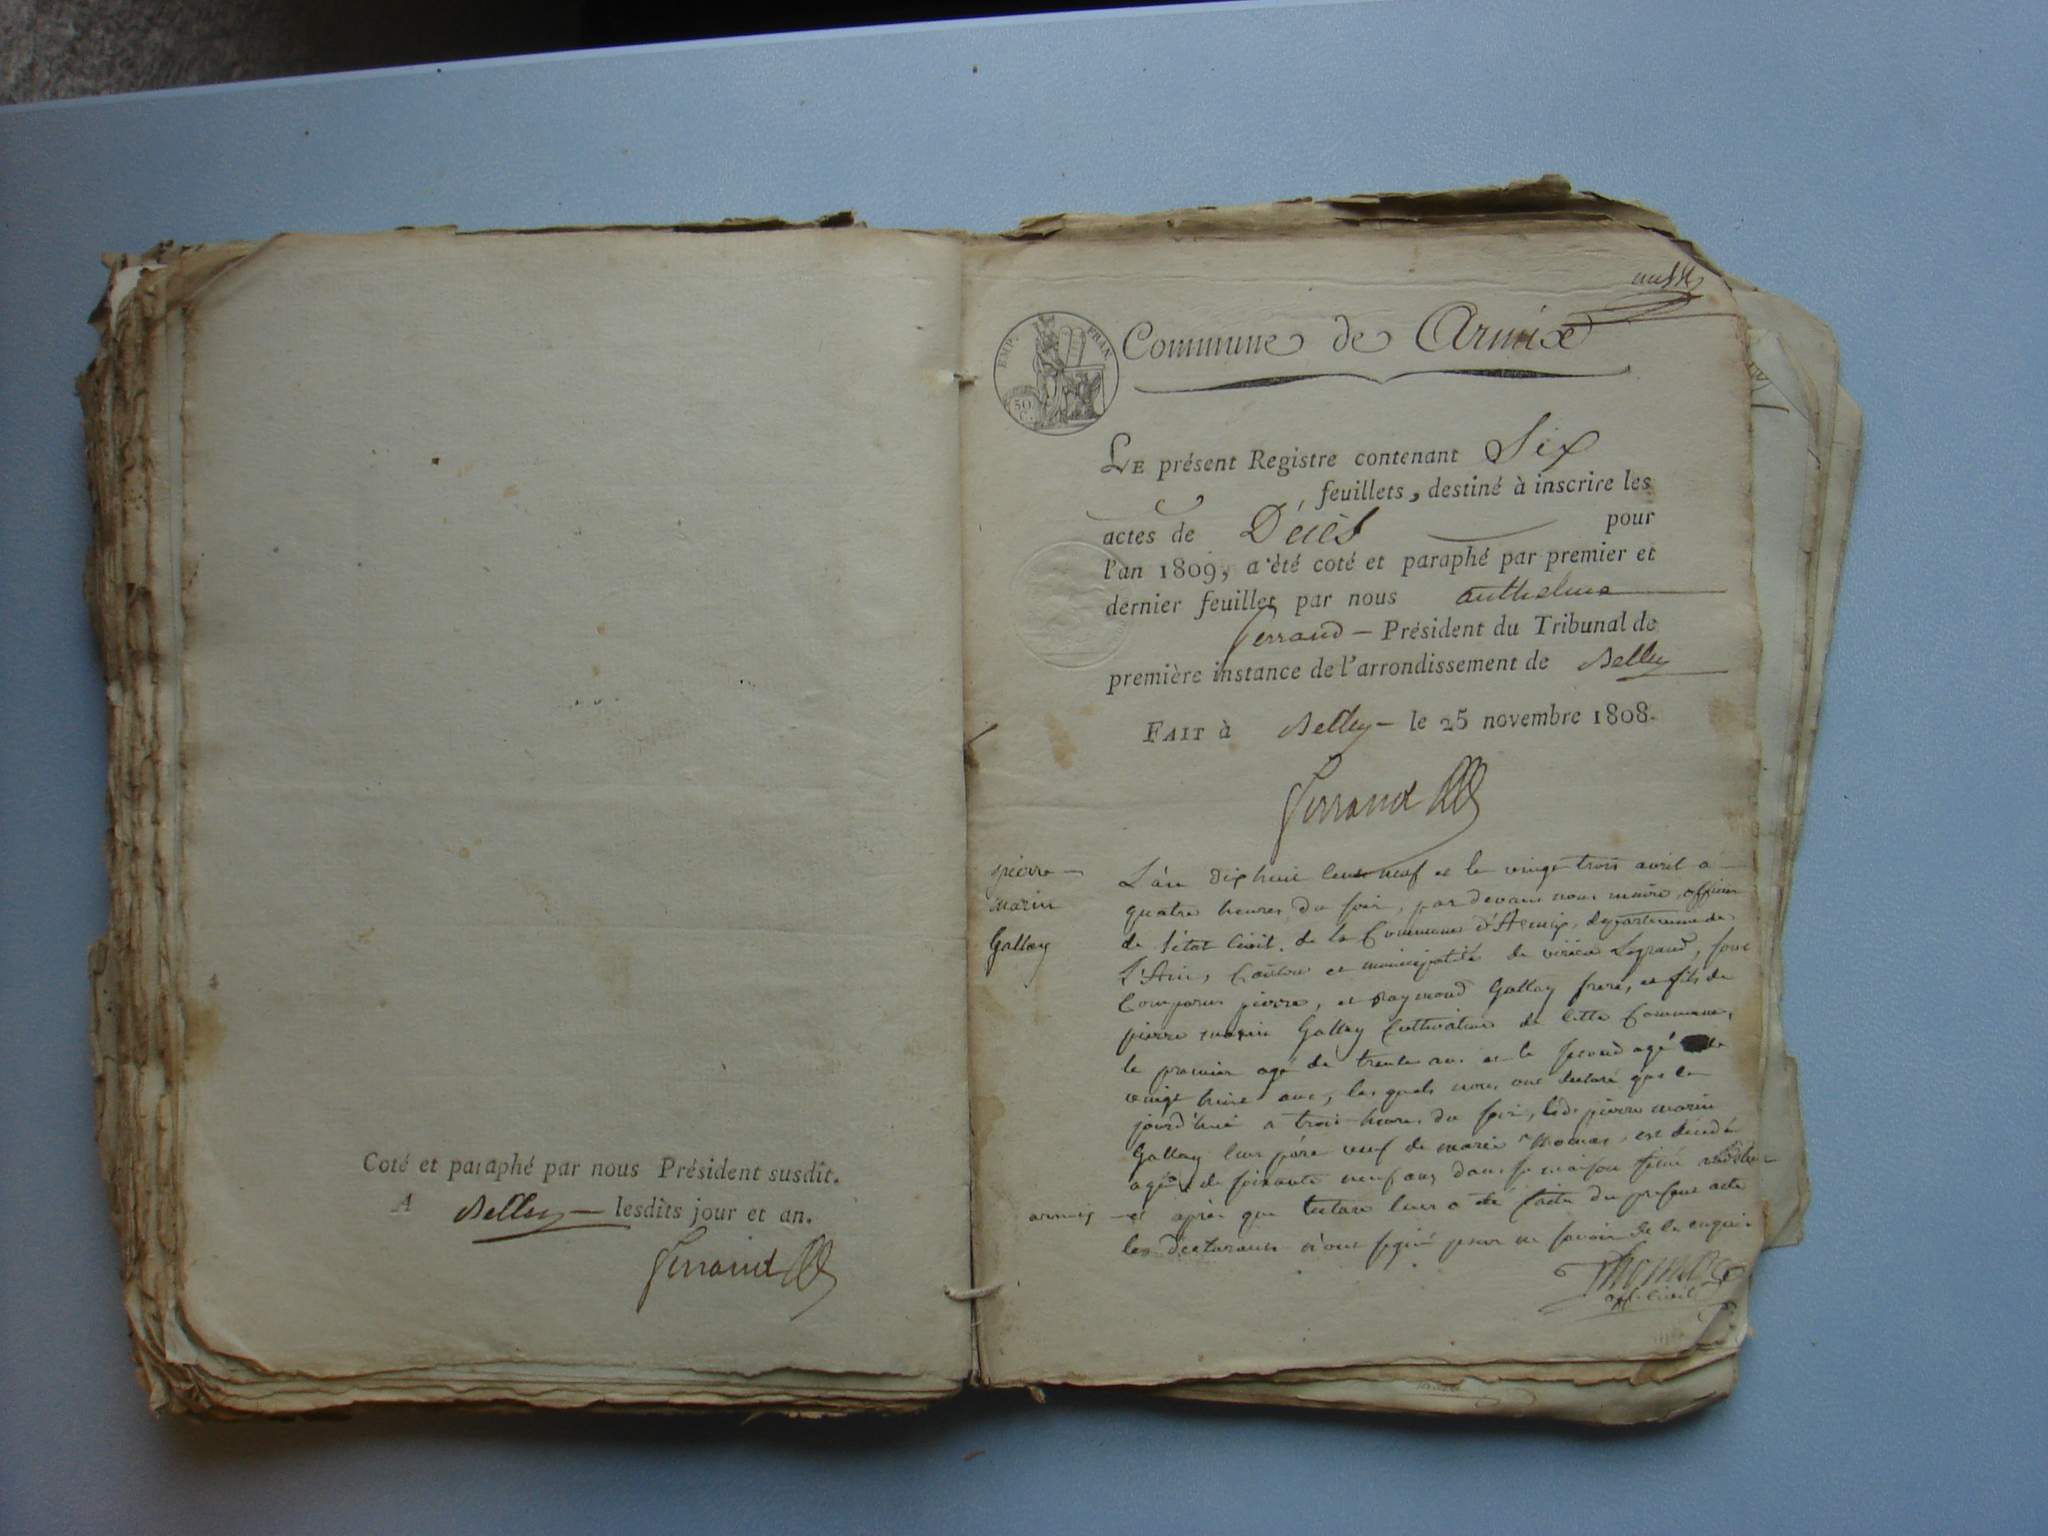 Coté et paraphé par nous Président susdit.
A Belley lesdits jour et an.
Ferrand
EMP. FRAN.
50 C.
Commune de Armix
LE présent Registre contenant Six
feuillets, destiné à inscrire les
actes de Décès pour
l'an 1809, a été coté et paraphé par premier et
dernier feuillet par nous anthelme
ferrand — Président du Tribunal de
première instance de l'arrondissement de Belley
FAIT à Belley — le 25 novembre 1808.
Ferrand
pierre —
marin
Gallay
L'an dix huit cent neuf et le vingt trois avril a
quatre heures du soir, par devant nous maire officier
de l'état civil de la Commune d'Armix, departement de
L'Ain, Canton et municipalité de virieu Legrand, sont
Comparus pierre, et Raymond Gallay frere, et fils de
pierre marin Gallay Cultivateur de cette Commune,
le premier agé de trente ans et le second agé de
vingt huit ans, les quels nous ont declaré que ce
jourd'hui a trois heures du soir, led. pierre marin
Gallay leur père veuf de marie Thomas, est décédé
agé de soixante neuf ans dans sa maison située
armix — et après que lecture leur a été faite du present acte
les declarants n'ont signé pour ne savoir de ce enquis
Thomas
off. civil